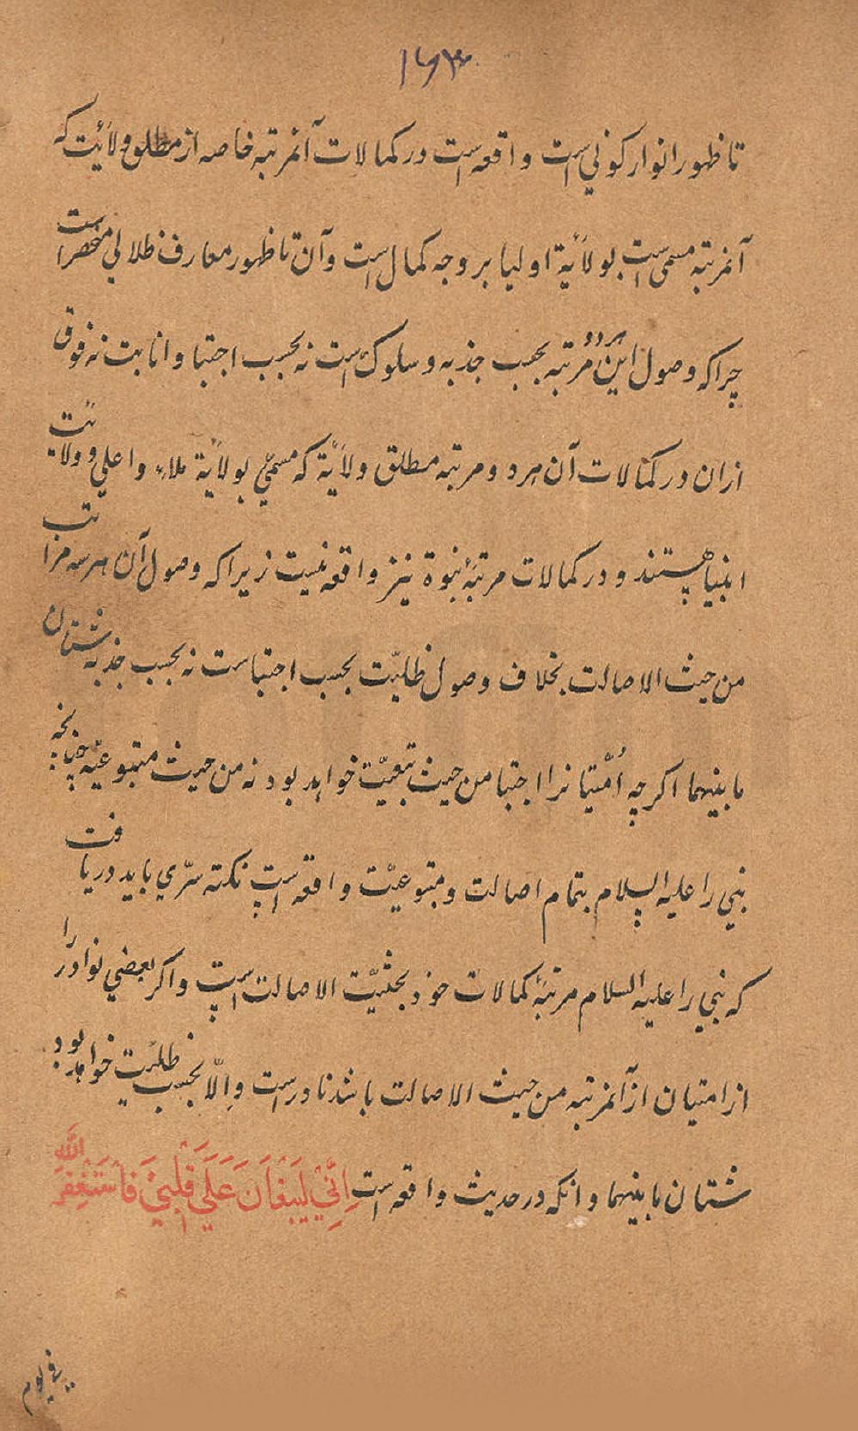 ۱۶۳
تا ظهور انوار کونی است واقعه است در کمالات آنمرتبه خاصه از مطلق ولایت که
آنمرتبه مسمی است بولایة اولیا بر وجه کمال است وآن تا ظهور معارف ظلالی منحصر است
چرا که وصول این هر دو مرتبه بحسب جذبه و سلوک است نه بحسب اجتبا و انابت نه فوق
ازان در کمالات آن هر دو مرتبه مطلق ولایة که مسمی بولایة ملاء و اعلی و ولایت
انبیا هستند و در کمالات مرتبهٔ نبوة نیز واقعه نیست زیرا که وصول آن هر سه مراتب
من حیث الاصالت بخلاف وصول ظلیّت بحسب اجتباست نه بحسب جذبه شتان
ما بینهما اکرچه اُمّتیانرا اجتبا من حیث تبعیّت خواهد بود نه من حیث متبوعیّه چنانچه
نبی را علیه السلام بتمام اصالت ومتبوعیّت واقعه است نکته سرّی باید دریافت
که نبی را علیه السلام مرتبهٔ کمالات خود بحثیّت الاصالت است واکر بعضی نوادر را
از امتیان از آنمرتبه من حیث الاصالت باشد نادر است واِلّا بحسب ظلیّت خواهد بود
شتان ما بینهما وانکه در حدیث واقعه است اِنِّیْ لَیَبغُاَنَ عَلَیَ قَلْبِیْ فَاسْتَغْفِرَ اللّٰه
فی یوم